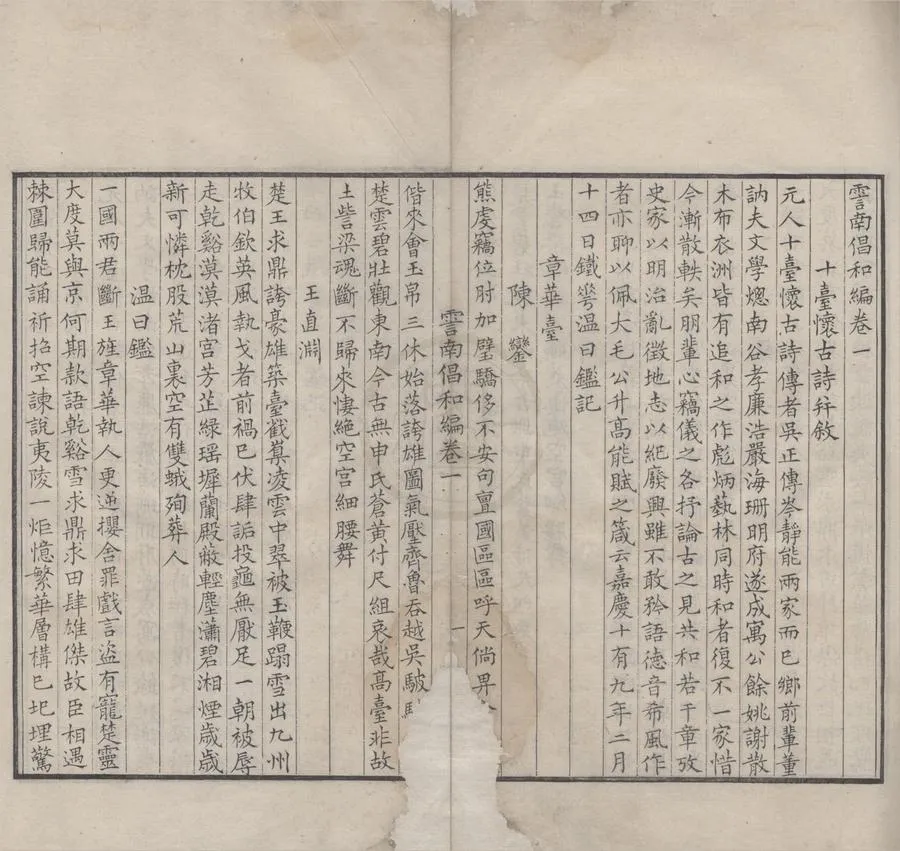 雪南倡和編卷一
十臺懷古詩幷敘
元人十臺懷古詩傳者吳正傳岑靜能兩家而已鄉前輩董
訥夫文學熜南谷孝廉浩嚴海珊明府遂成寓公餘姚謝散
木布衣洲皆有追和之作彪炳藝林同時和者復不一家惜
今漸散軼矣朋輩心竊儀之各抒論古之見共和若干章攷
史家以明治亂徵地志以紀廢興雖不敢矜語德音希風作
者亦聊以佩大毛公升高能賦之箴云嘉慶十有九年二月
十四日鐵花溫曰鑑記
章華臺
陳鑾
熊虔竊位肘加璧驕侈不安句亶國區區呼天倘畀
雪南倡和編卷一
一
偕來會玉帛三休始落誇雄圖氣壓齊魯吞越吳駊
楚雲碧壯觀東南今古無申氏蒼黃付尺組哀哉高臺非故
土訾梁魂斷不歸來悽絕空宮細腰舞
王直淵
楚王求鼎誇豪雄築臺截嶪凌雲中翠被玉鞭蹋雪出九州
牧伯欽英風執戈者前禍已伏肆詬投龜無厭足一朝被辱
走乾谿漠漠渚宮芳芷綠瑤墀蘭殿敝輕塵瀟碧湘煙歲歲
新可憐枕股荒山裏空有雙蛾殉葬人
溫曰鑑
一國兩君斷王旌章華執人更逆攖舍罪戲言盜有寵楚靈
大度莫與京何期款語乾谿雪求鼎求田肆雄傑故臣相遇
棘圍歸能誦祈招空諫說夷陵一炬憶繁華層構已圮埋驚